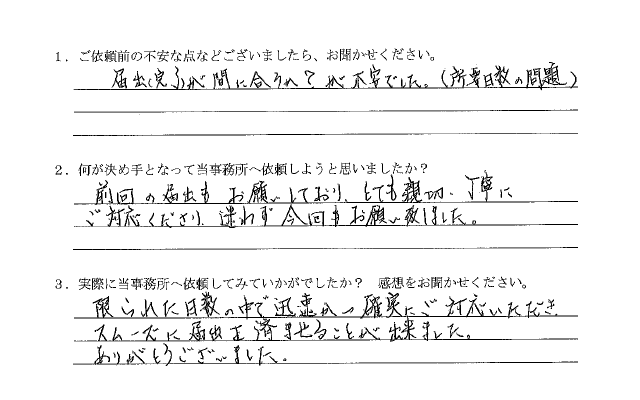 1．ご依頼前の不安な点などございましたら、お聞かせください。
届出完了が間に合うか？が不安でした。（所要日数の問題）
2．何が決め手となって当事務所へ依頼しようと思いましたか？
前回の届出もお願いしており、とても親切、丁寧に
ご対応くださり、迷わず今回もお願い致しました。
3．実際に当事務所へ依頼してみていかがでしたか？　感想をお聞かせください。
限られた日数の中で迅速かつ確実にご対応いただき
スムーズに届出を済ませることが出来ました。
ありがとうございました。